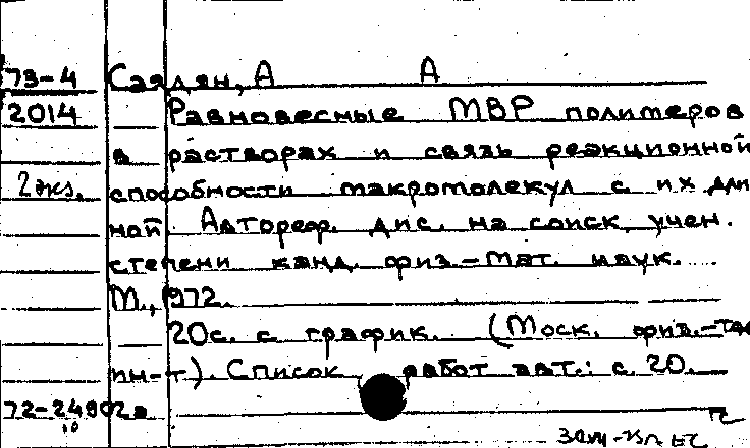 73-4 Саядян, А А
2014 Равновесные МВР полимеров
в растворах и связь реакционной
2 экз. способности макромолекул с их дли
ной. Автореф. дис. на соиск. учен.
степени канд. физ.-мат. наук.
М., 1972.
20с. с график. (Моск. физ.-тех
ин-т). Список работ авт.: с. 20.
72-24902а